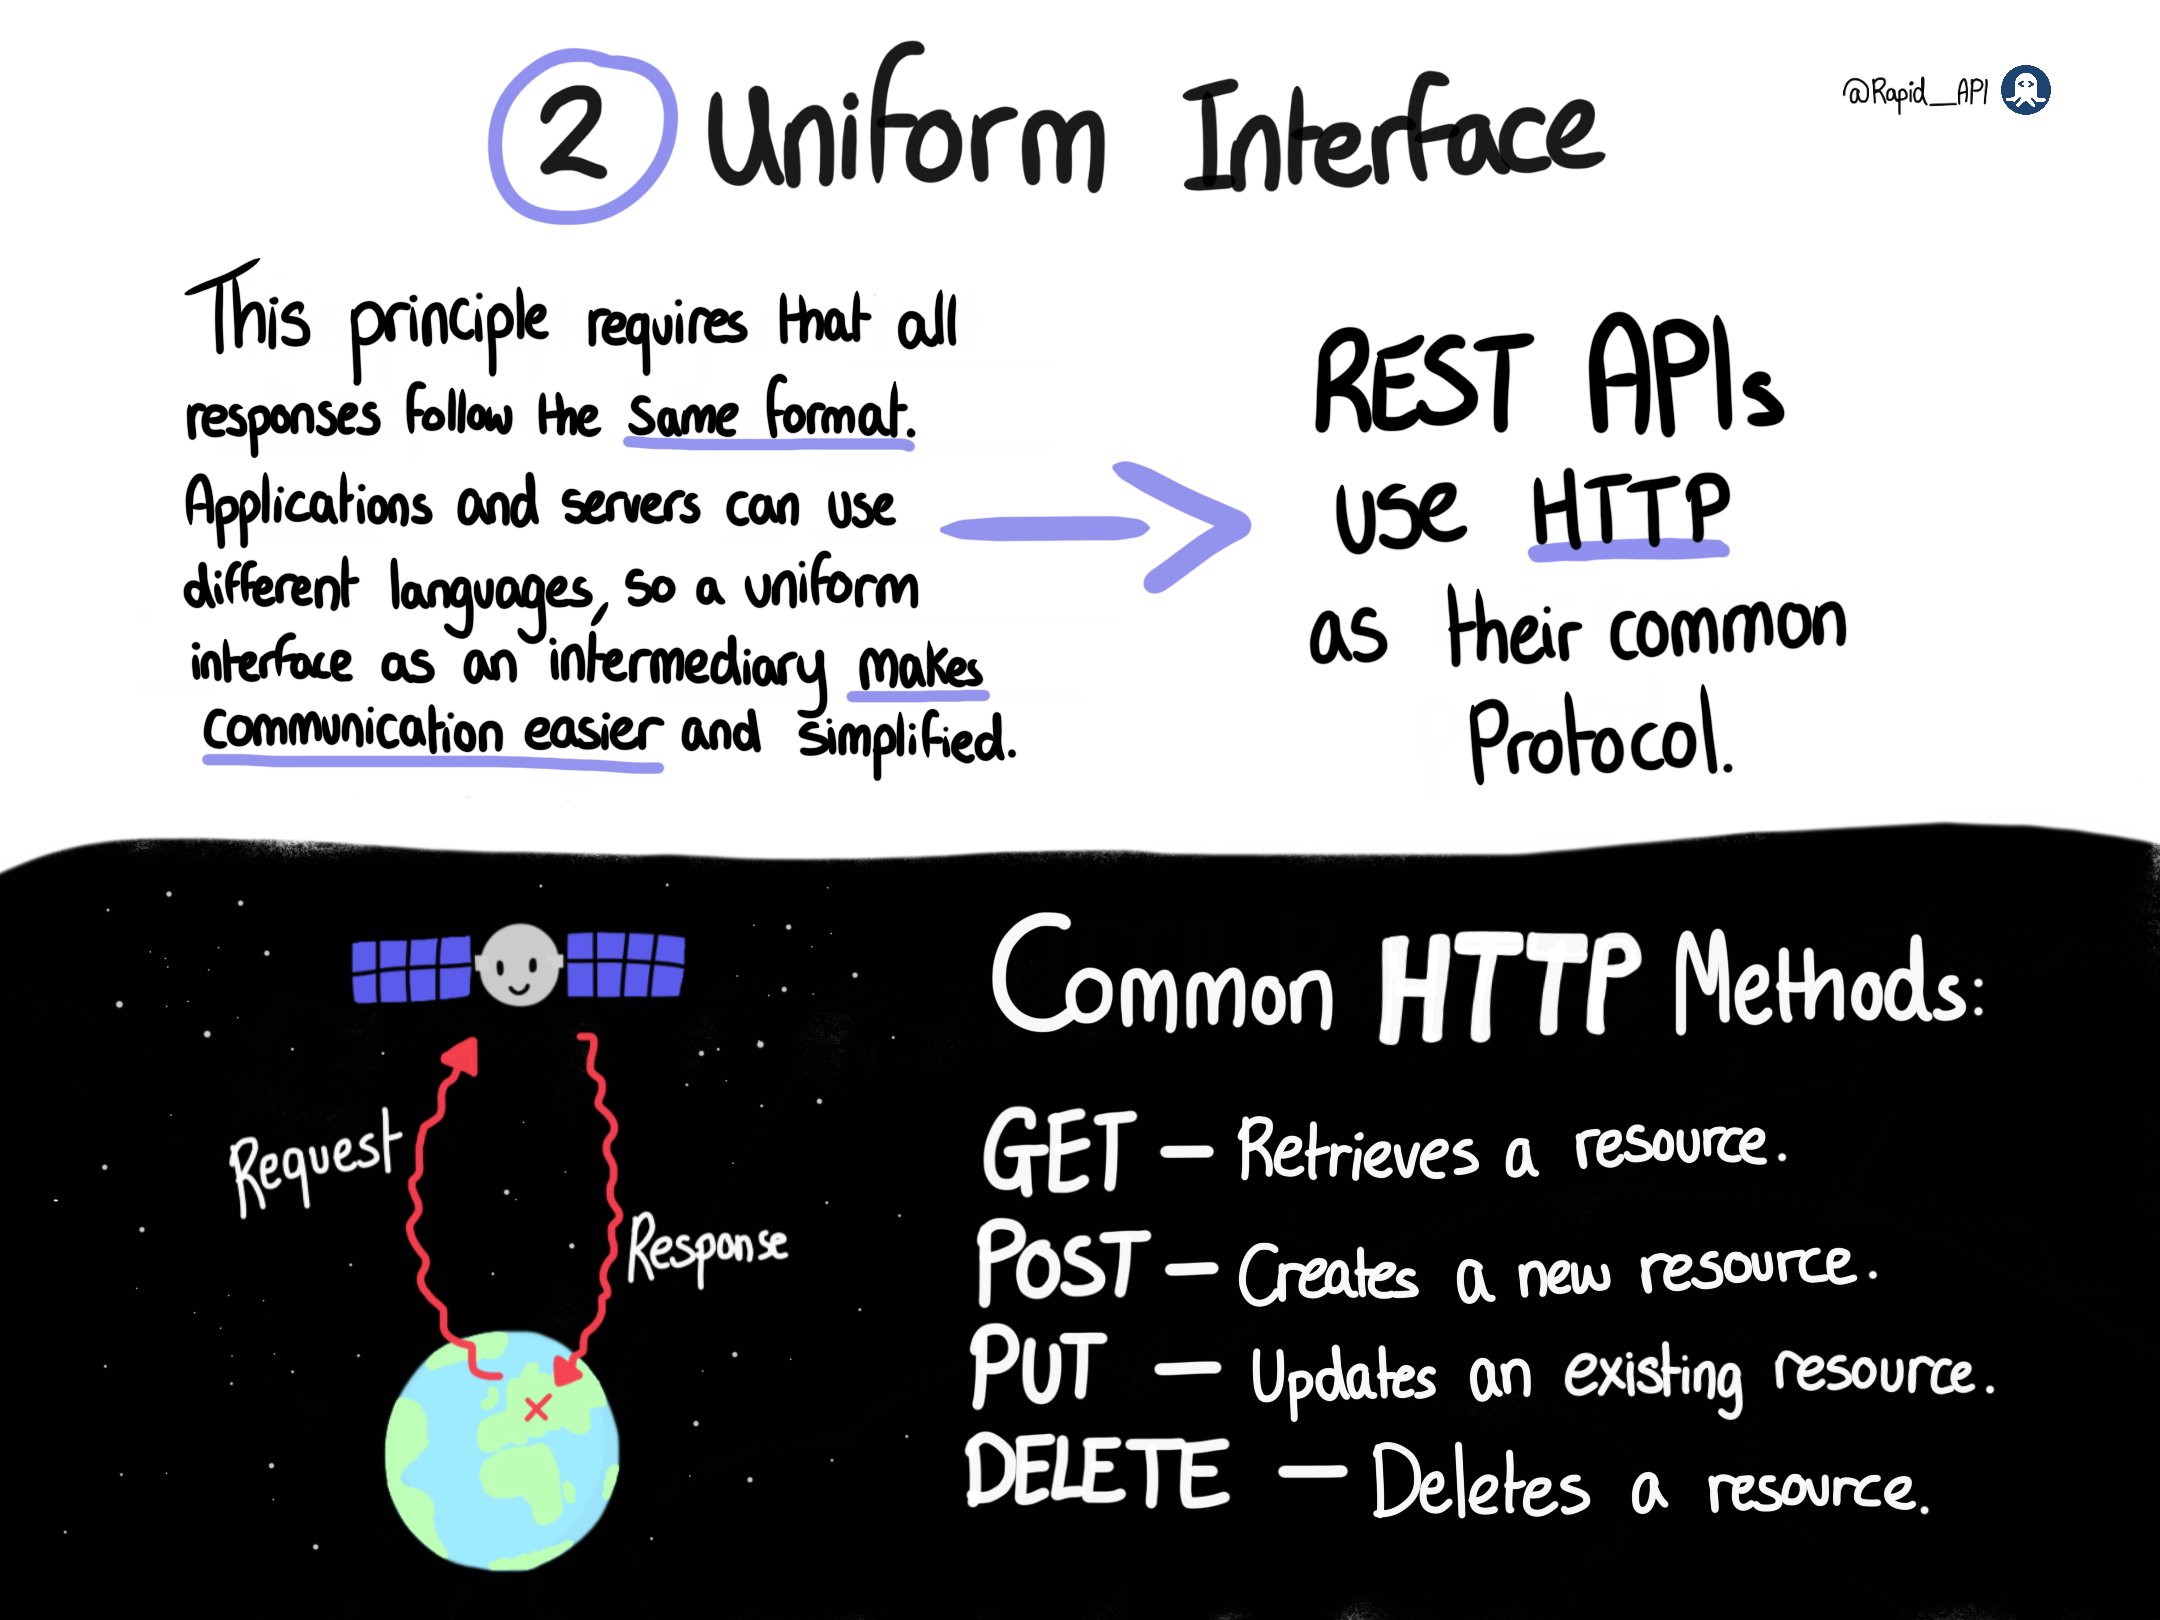 2 Uniform Interface
@Rapid_API
This principle requires that all
responses follow the same format.
Applications and servers can use
different languages, so a uniform
interface as an intermediary makes
communication easier and simplified.
REST APIs
use HTTP
as their common
Protocol.
Request
Response
Common HTTP Methods:
GET — Retrieves a resource.
POST — Creates a new resource.
PUT — Updates an existing resource.
DELETE — Deletes a resource.